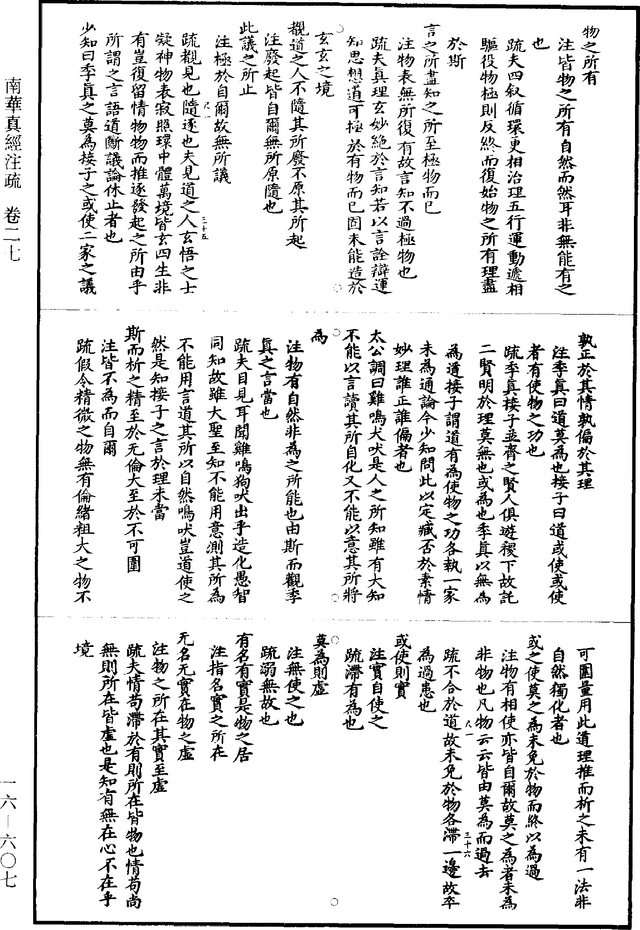 南華真經注疏　卷二七
一六—六〇七
物之所有
注皆物之所有自然而然耳非無能有之
也
疏夫四叙循環更相治理五行運動遞相
驅役物極則反終而復始物之所有理盡
於斯
言之所盡知之所至極物而已
注物表無所復有故言知不過極物也
疏夫真理玄妙絶於言知若以言詮辯運
知思想適可極於有物而已固未能造於
玄玄之境
覩道之人不隨其所廢不原其所起
注廢起皆自爾無所原隨也
此議之所止
注極於自爾故無所議
疏覩見也隨逐也夫見道之人玄悟之士
凝神物表寂照環中體萬境皆玄四生非
有豈復留情物物而推逐發起之所由乎
所謂之言語道斷議論休止者也
少知曰季真之莫為接子之或使二家之議
孰正於其情孰偏於其理
注季真曰道莫為也接子曰道或使或使
者有使物之功也
疏季真接子並齊之賢人俱遊稷下故託
二賢明於理莫無也或為也季真以無為
為道接子謂道有為使物之功各執一家
未為通論今少知問此以定臧否於素情
妙理誰正誰偏者也
太公調曰雞鳴犬吠是人之所知雖有大知
不能以言讀其所自化又不能以意其所將
為
注物有自然非為之所能也由斯而觀季
真之言當也
疏夫目見耳聞雞鳴狗吠出乎造化愚智
同知故雖大聖至知不能用意測其所為
不能用言道其所以自然鳴吠豈道使之
然是知接子之言於理未當
斯而析之精至於无倫大至於不可圍
注皆不為而自爾
疏假令精微之物無有倫緒粗大之物不
可圍量用此道理推而析之未有一法非
自然獨化者也
或之使莫之為未免於物而終以為過
注物有相使亦皆自爾故莫之為者未為
非物也凡物云云皆由莫為而過去
疏不合於道故未免於物各滯一邊故卒
為過患也
或使則實
注實自使之
疏滯有為也
莫為則虛
注無使之也
疏溺無故也
有名有實是物之居
注指名實之所在
无名无實在物之虛
注物之所在其實至虛
疏夫情苟滯於有則所在皆物也情苟尚
無則所在皆虛也是知有無在心不在乎
境